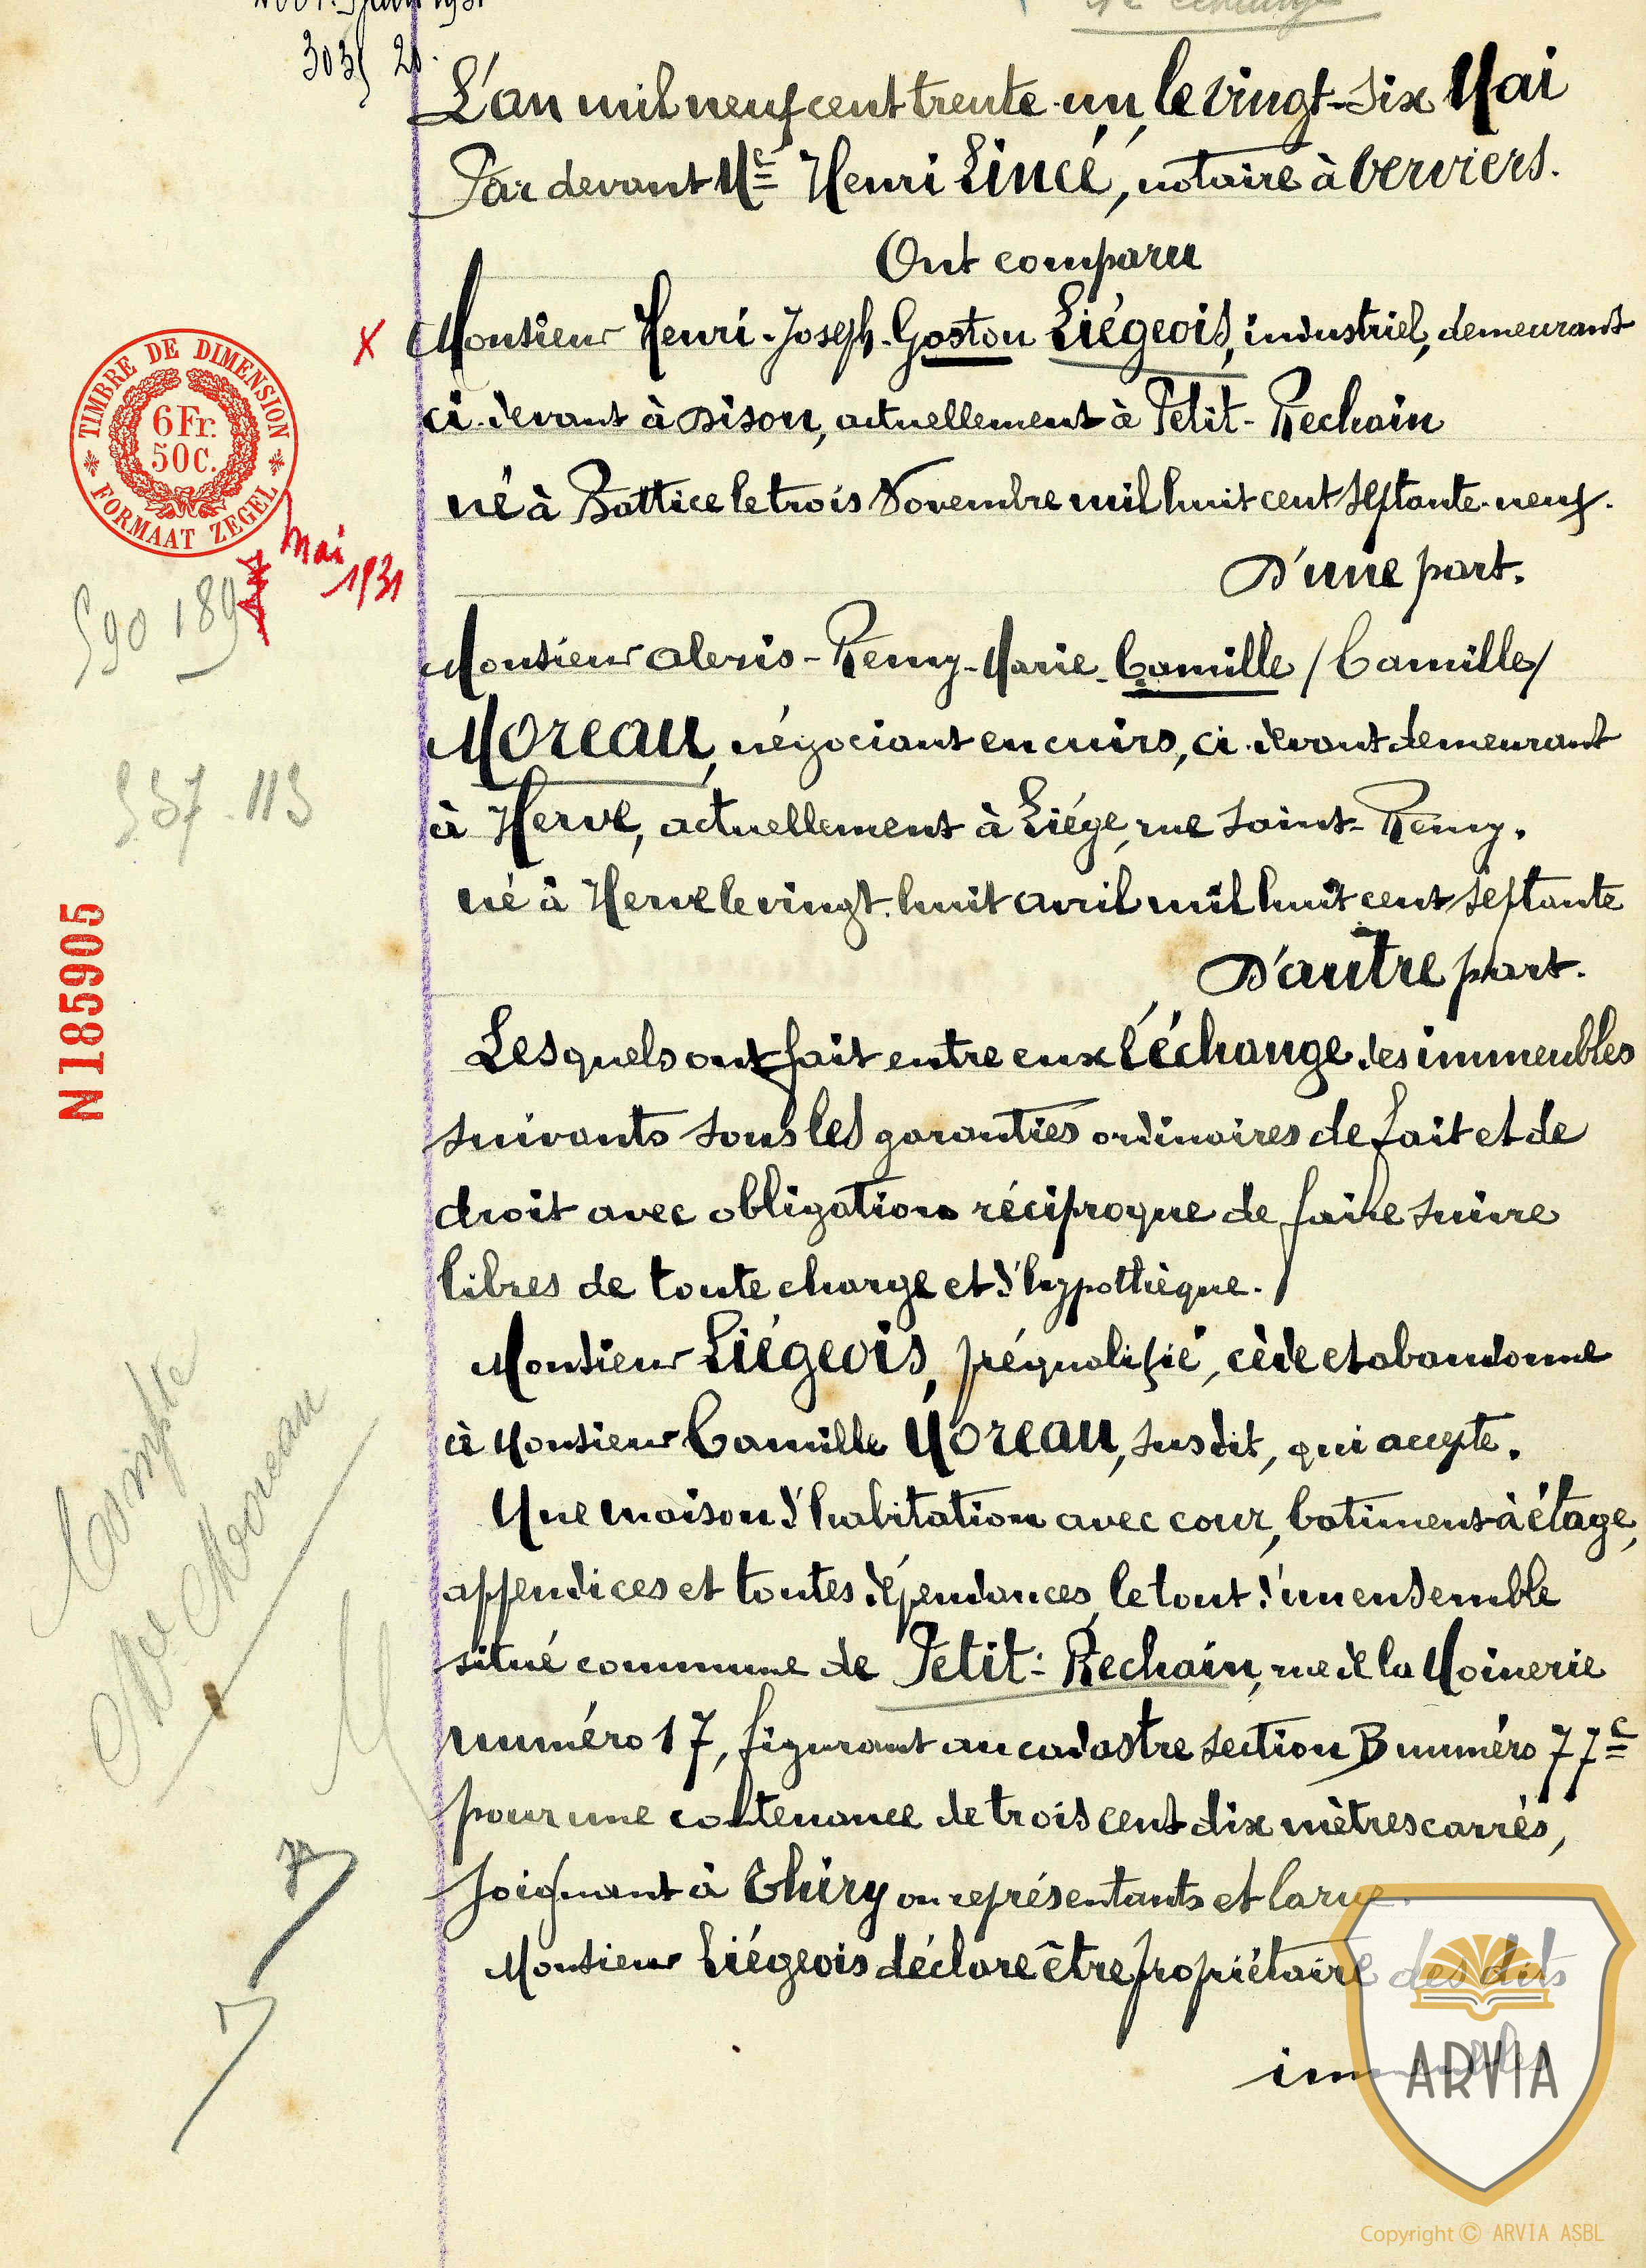 303 20.
L'an mil neuf cent trente-un, le vingt-six Mai
Par devant Me Henri Lincé, notaire à Verviers.
Ont comparu
x Monsieur Henri-Joseph-Gaston Liégeois, industriel, demeurant
ci-devant à Dison, actuellement à Petit-Rechain
né à Battice le trois Novembre mil huit cent septante-neuf.
D'une part.
Monsieur Alexis-Remy-Marie-Camille /Camille/
Moreau, négociant en cuirs, ci-devant demeurant
à Herve, actuellement à Liége, rue Saint-Remy.
né à Herve le vingt-huit avril mil huit cent septante
D'autre part.
Lesquels ont fait entre eux l'échange des immeubles
suivants sous les garanties ordinaires de fait et de
droit avec obligation réciproque de faire suivre
libres de toute charge et d'hypothèque.
Monsieur Liégeois, préqualifié, cède et abandonne
à Monsieur Camille Moreau, susdit, qui accepte.
Une maison d'habitation avec cour, batiment à étage,
appendices et toutes dépendances, le tout d'un ensemble
situé commune de Petit-Rechain, rue de la Moinerie
numéro 17, figurant au cadastre section B numéro 77c
pour une contenance de trois cent dix mètres carrés,
joignant à Thiry ou représentants et la rue.
Monsieur Liégeois déclare être propriétaire des dits
immeubles
TIMBRE DE DIMENSION
6 Fr.
50 C.
FORMAAT ZEGEL
Mai
1931
590 189
557-113
N 185905
Compte
Me Moreau
ARVIA
Copyright © ARVIA ASBL